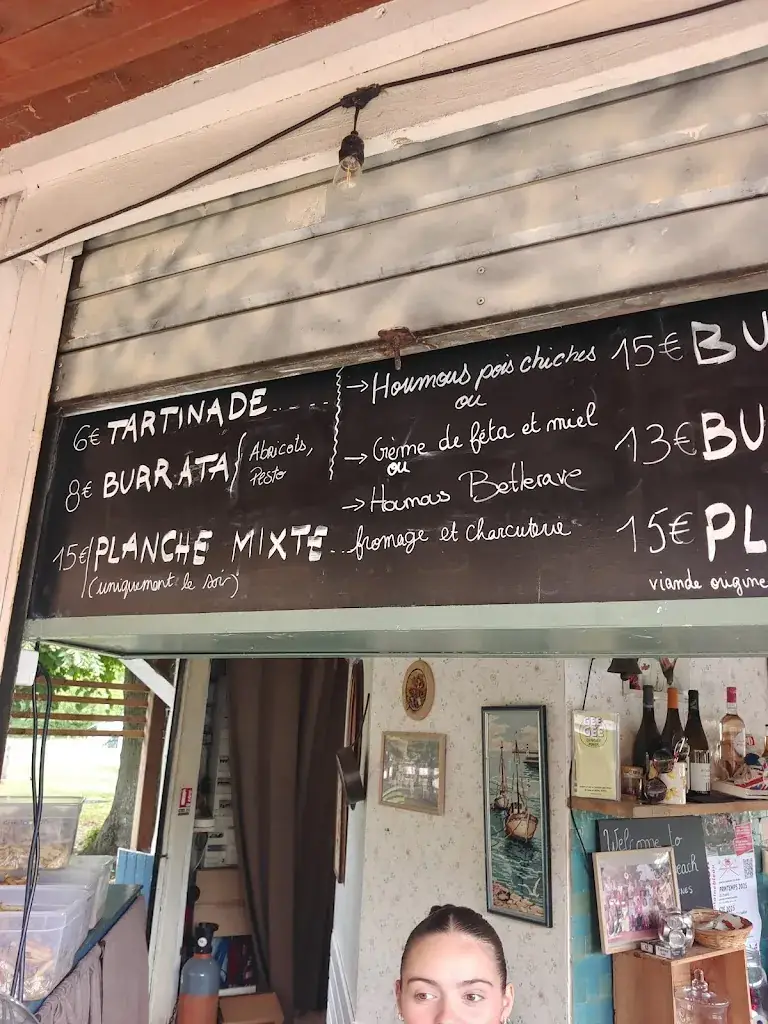 6€ TARTINADE
→ Houmous pois chiches
ou
→ Crème de féta et miel
ou
→ Houmous Betterave
8€ BURRATA
Abricots,
Pesto
15€ PLANCHE MIXTE ... fromage et charcuterie
(uniquement le soir)
15€ BU
13€ BU
15€ PL
viande origine
GEE
GEE
Welcome to
each
PRINTEMPS 2025